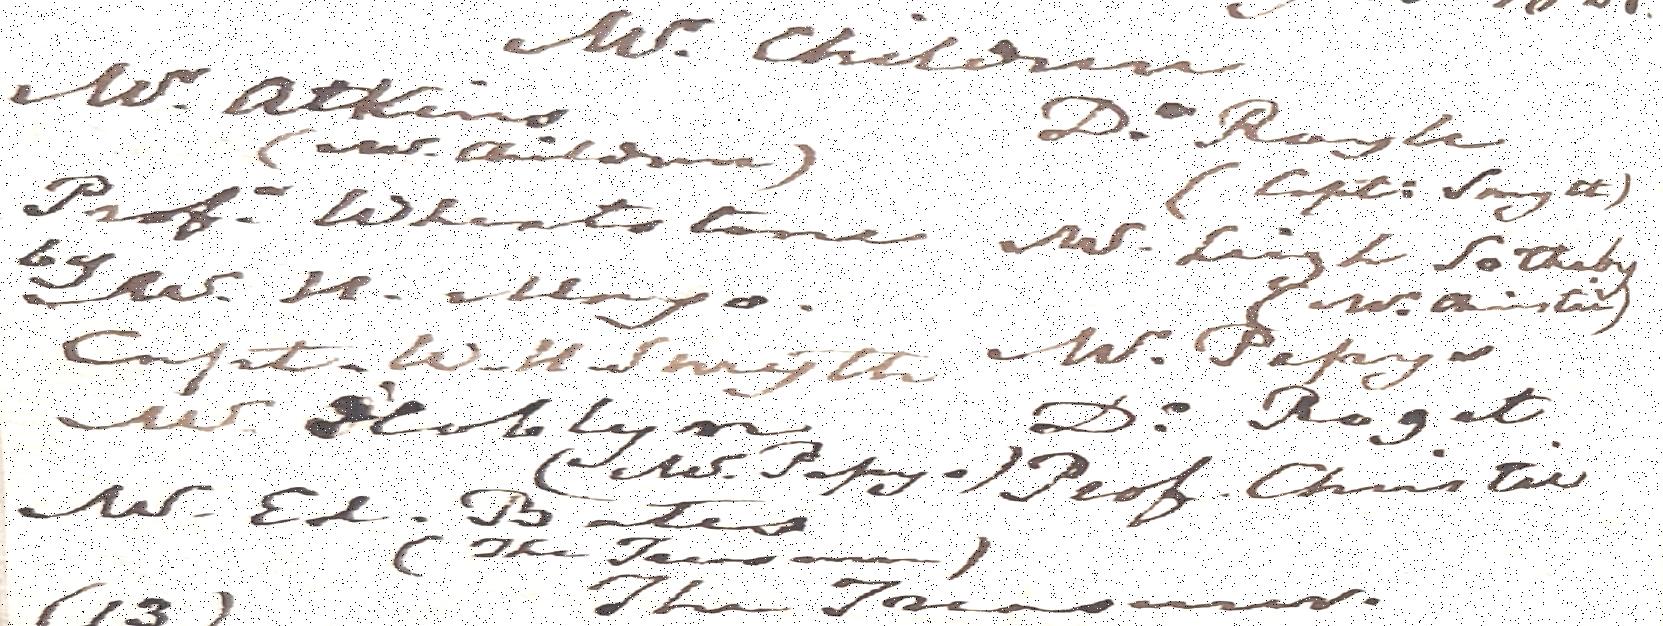 Mr. Children
Mr. Atkins
Dr. Royle
(Mr. Children)
(Capt. Smyth)
Prof. Wheatstone
Mr. Leigh Sotheby
by
Mr. H. Mayo.
(Mr. Christie)
Capt. W. H. Smyth
Mr. Pepys
Mr. Hoblyn
Dr. Roget
(Mr. Pepys)
Prof. Christie
Mr. Ed.
(The Treasurer)
(13)
The Treasurer.